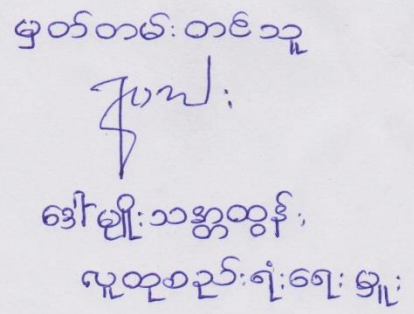 မှတ်တမ်းတင်သူ
ဒေါ်မျိုးသန္တာထွန်း,
လူထုစည်းရုံးရေးမှူး